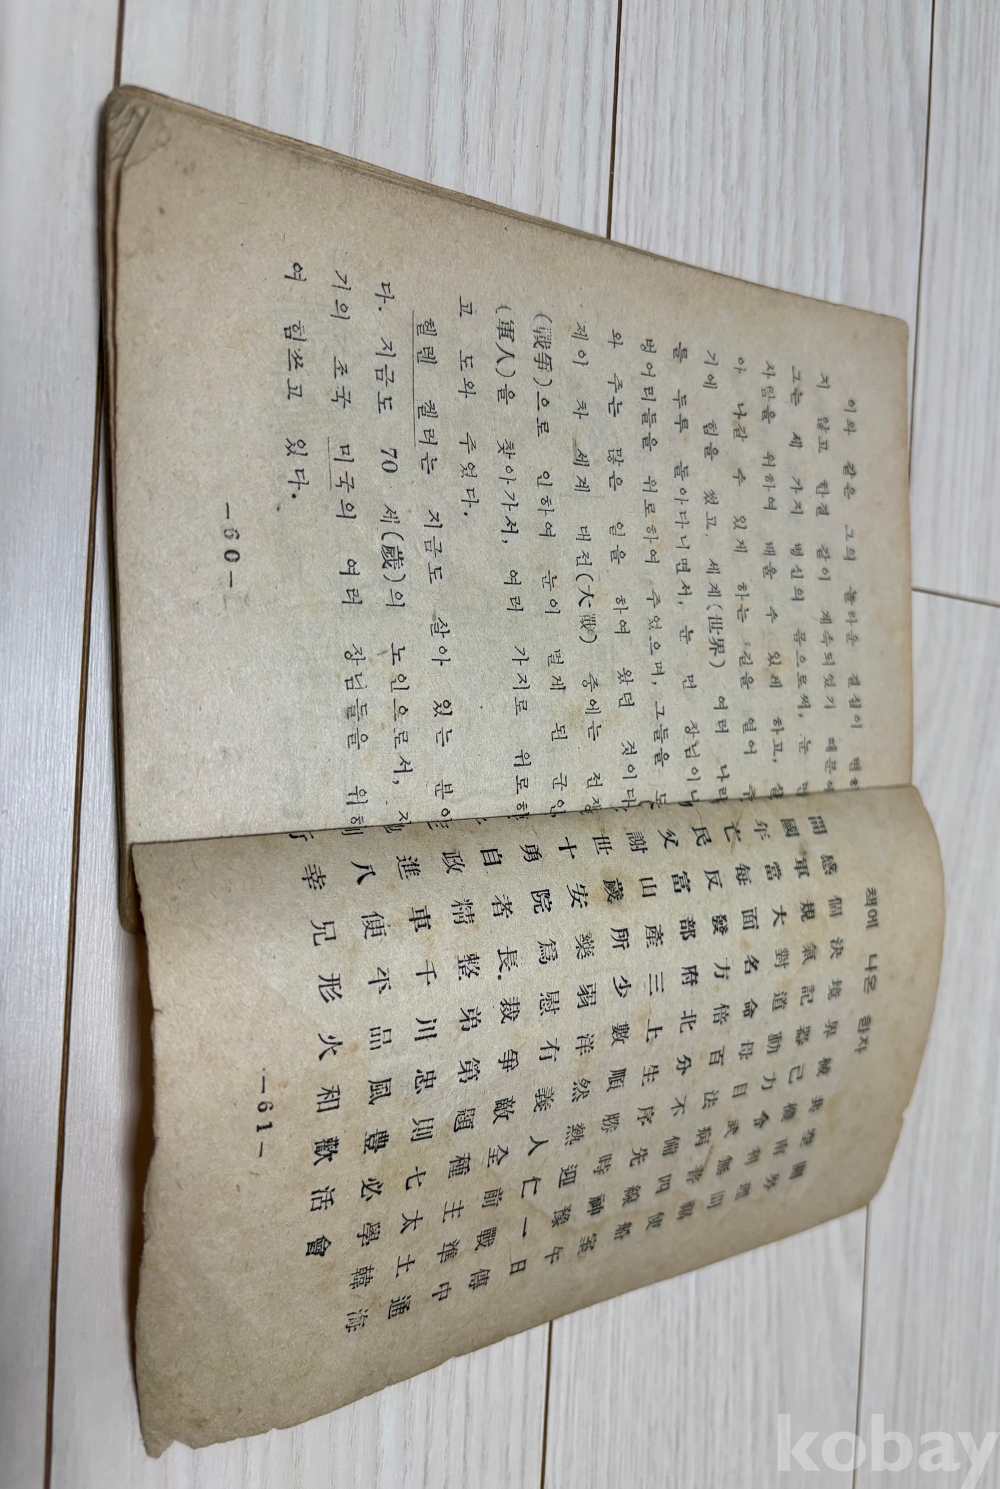 이와 같은 그의 놀라운 결심이 변하
지 않고 한결 같이 계속되었기 때문에
그는 세 가지 병신의 몸으로써, 눈 먼
사람을 위하여 배울 수 있게 하고, 살
아 나갈 수 있게 하는 길을 열어 주
기에 힘을 썼고, 세계(世界) 여러 나라
를 두루 돌아다니면서, 눈 먼 장님이나
벙어리들을 위로하여 주었으며, 그들을 도
와 주는 많은 일을 하여 왔던 것이다.
제이 차 세계 대전(大戰) 중에는 전쟁
(戰爭)으로 인하여 눈이 멀게 된 군인
(軍人)을 찾아가서, 여러 가지로 위로하
고 도와 주었다.
헬렌 켈러는 지금도 살아 있는 분이
다. 지금도 70 세(歲)의 노인으로서, 자
기의 조국 미국의 여러 장님들을 위하
여 힘쓰고 있다.
—60—
책에 나온 한자
感 個 決 境 界 空 關
國 軍 規 氣 記 器 己 機 南 外
年 當 大 對 道 動 力 令 理
亡 每 面 名 命 母 目 武 無 問
民 反 發 方 倍 百 法 病 普
父 富 部 府 北 分 不 備 四 使
謝 山 產 三 上 生 序 先 線 船
世 歲 所 少 數 順 勝 時 神 室
十 安 藥 弱 洋 然 熱 迎 豫 午
勇 院 爲 慰 有 義 人 仁 一 日
自 者 長 裁 爭 敵 全 前 戰 傳
政 精 整 弟 第 題 種 主 準 中
進 車 千 川 忠 則 七 太 土 通
八 便 平 品 風 豊 必 學 韓 海
行 幸 兄 形 火 和 歡 活 會
—61—
kobay